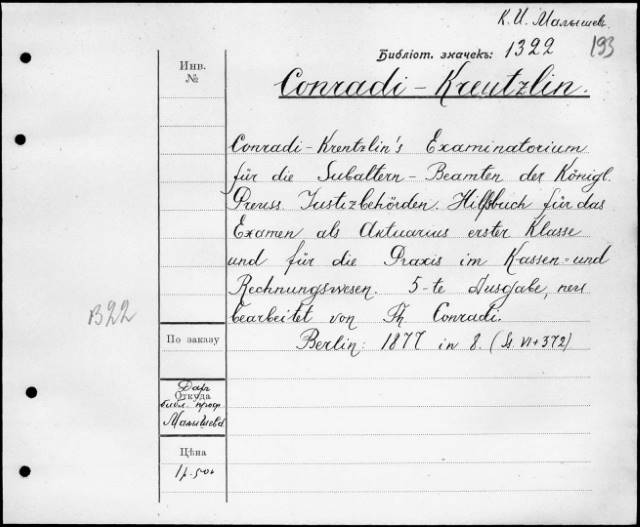 К. И. Малышев.
Библіот. значекъ: 1322
193
Инв.
№
Conradi - Kreutzlin.
Conradi - Krentzlin's Examinatorium
für die Subaltern - Beamten der Königl.
Preuss. Justizbehörden. Hilfsbuch für das
Examen als Aktuarius erster Klasse
und für die Praxis im Kassen- und
Rechnungswesen. 5-te Ausgabe, neu
bearbeitet von Th Conradi.
Berlin: 1877 in 8. (St. VI + 372)
B22
По заказу
Откуда
Даръ
библ. проф.
Малышева
Цѣна
1 р. 50 к